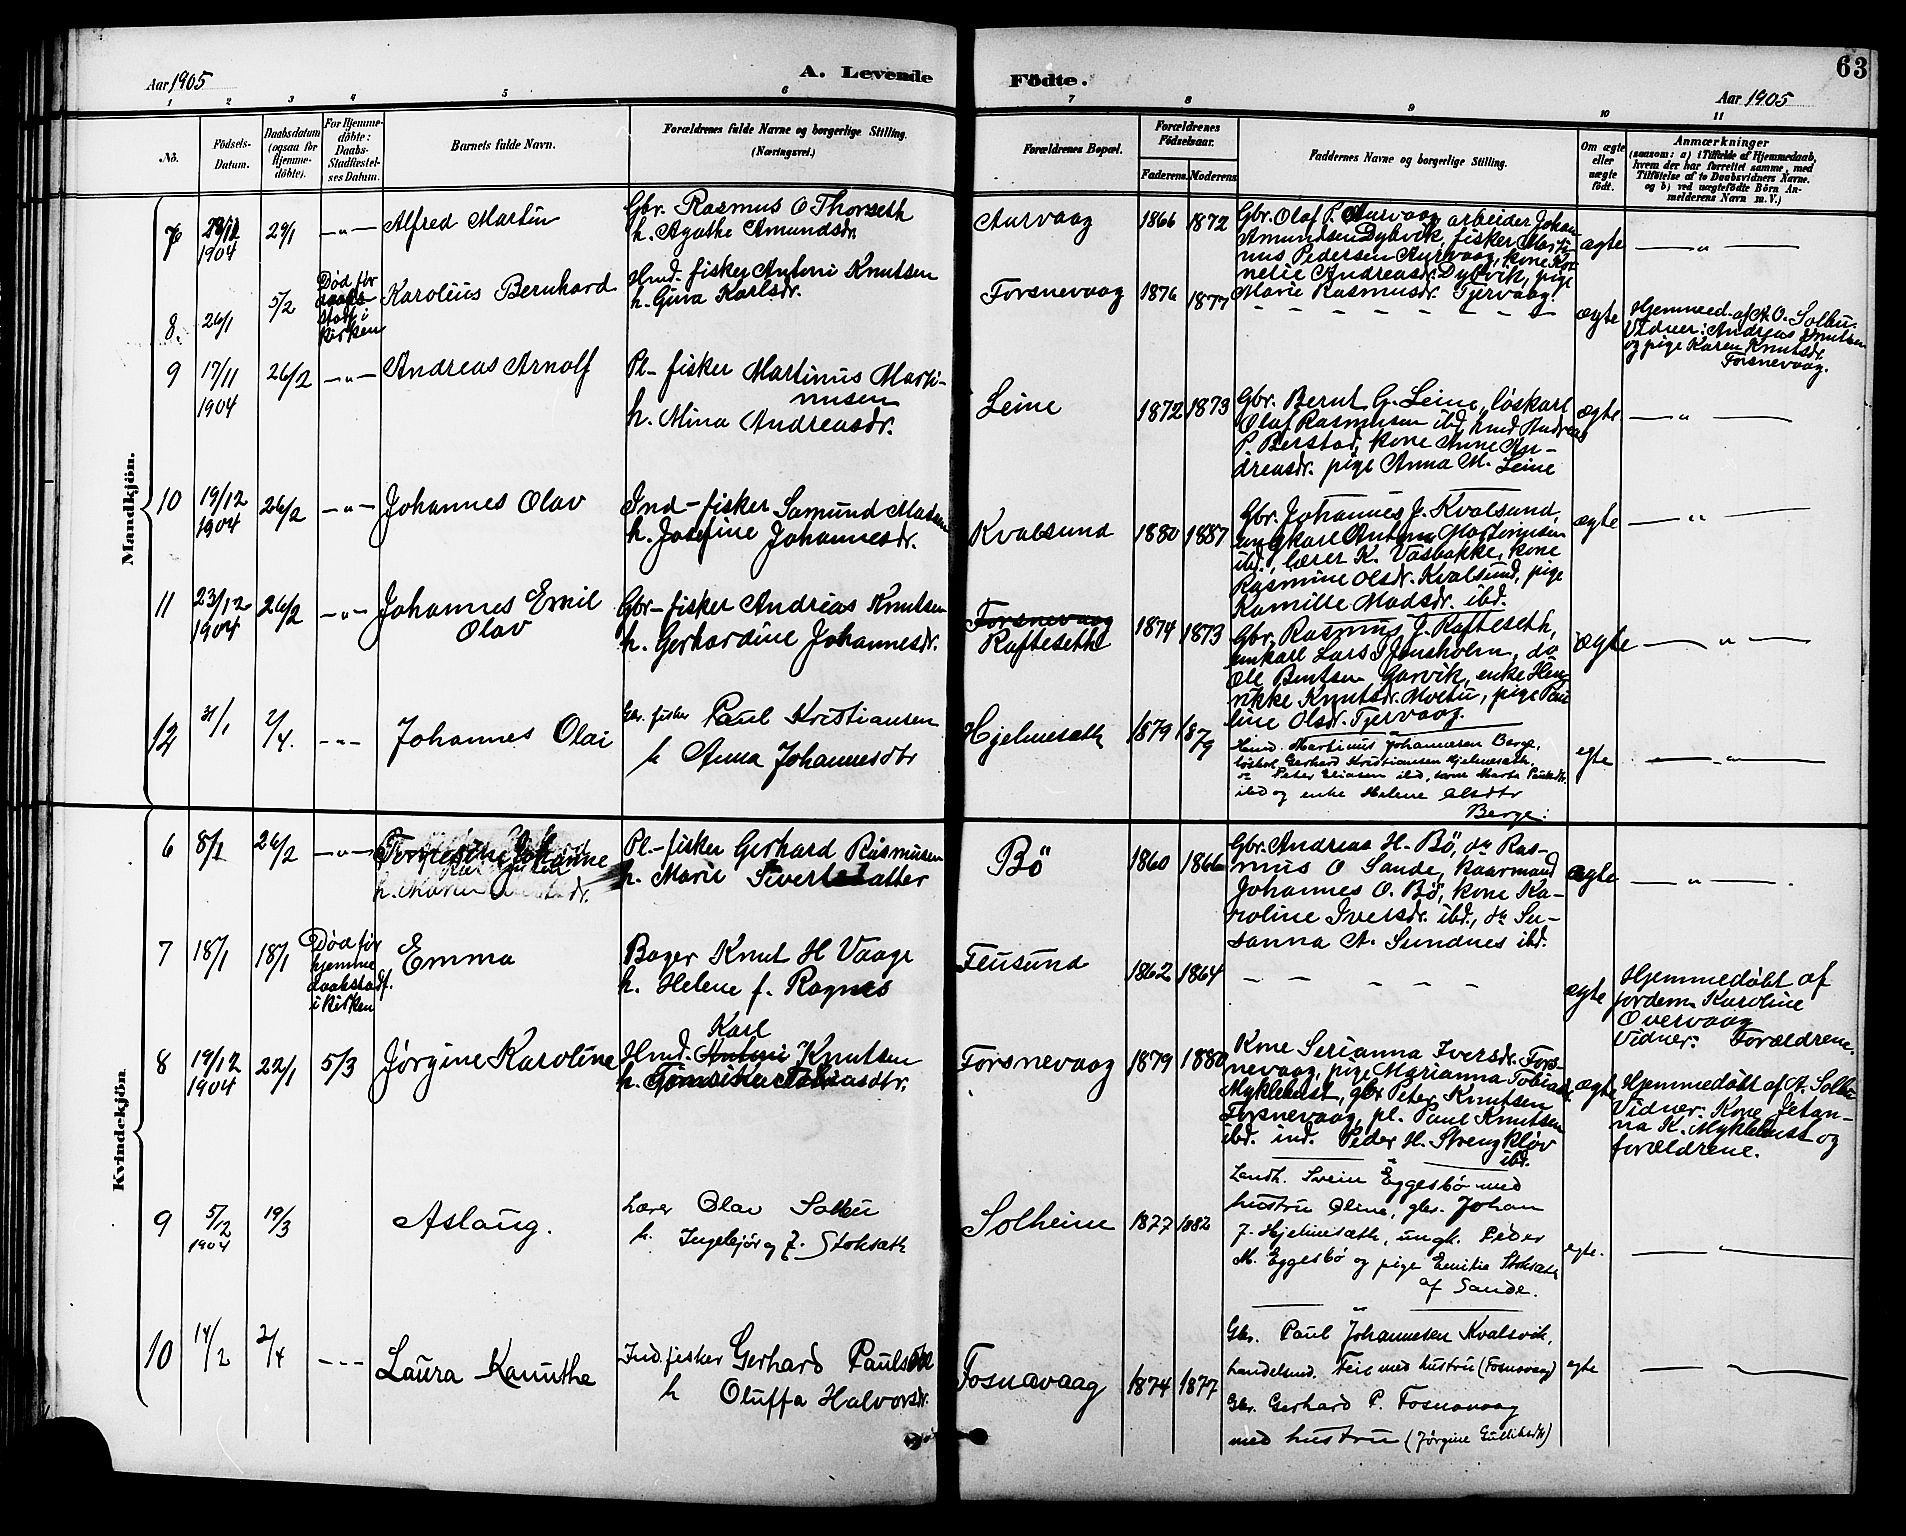 Aar 1905
A. Levende
Födte.
63
Aar 1905
1 2 3 4 5 6 7 8 9 10 11
No.
Födsels-
Datum.
Daabsdatum
(ogsaa for
Hjemme-
döbte).
For Hjemme-
döbte:
Daabs-
Stadfæstel-
ses Datum.
Barnets fulde Navn.
Forældrenes fulde Navne og borgerlige Stilling.
(Næringsvei.)
Forældrenes Bopæl.
Forældrenes
Födselsaar.
Faderens. Moderens.
Faddernes Navne og borgerlige Stilling.
Om ægte
eller
uægte
födt.
Anmærkninger
(saasom: a) i Tilfælde af Hjemmedaab,
hvem der har forrettet samme, med
Tilföielse af to Daabsvidners Navne.
og b) ved uægtefödte Börn An-
melderens Navn m. V.)
Mandkjön.
7
1904
29/1
— " —
Alfred Martin
Gbr. Rasmus O Thorseth
h. Agathe Amundsdr.
Aurvaag
1866 1872
Gbr. Olaf P. Aurvaag, arbeider Johan
Amundsen Dybvik, fisker Marti-
nus Pedersen Aurvaag, kone Kor-
nelie Andreasdr. Dybvik, pige
Marie Rasmusdr. Tjervaag.
ægte
— " —
8.
26/1
5/2
Død før
daabs-
stadf. i
kirken
Karolius Bernhard
Hmd. fisker Antoni Knutsen
h. Guva Karlsdr.
Forsnevaag
1876 1877
– – – – – – –
ægte
Hjemmed. af A. O. Solbu.
Vidner: Andreas Knutsen
og pige Karen Knutsdr.
Forsnevaag.
9
17/11
1904
26/2
— " —
Andreas Arnolf
Pl- fisker Martinus Marti-
nusen
h. Mina Andreasdr.
Leine
1872 1873
Gbr. Bernt G. Leine, løskarl
Olaf Rasmusen ibd, hmd Andreas
P. Berstad, kone Anne An-
dreasdr. pige Anna M. Leine
ægte
— " —
10
19/12
1904
26/2
— " —
Johannes Olav
Ind- fisker Samund Madsen
h. Josefine Johannesdr.
Kvalsund
1880 1887
Gbr. Johannes J. Kvalsund,
ungkarl Anton Mortensen
ibd., lærer K. Vasbakke, kone
Rasmine Olsdr. Kvalsund, pige
Kamille Madsdr. ibd.
ægte
— " —
11
23/12
1904
26/2
— " —
Johannes Emil
Olav
Gbr- fisker Andreas Knutsen
h. Gerhardine Johannesdr.
Forsnevaag
Rafteseth
1874 1873
Gbr. Rasmus J. Rafteseth,
unkarl Lars J Jensholm, do
Ole Bentsen Garvik, enke Hen-
rikke Knutsdr. Moltu, pige Pau-
line Olsdr. Tjervaag.
ægte
— " —
12
31/1
2/4.
— " —
Johannes Olai
Gbr. fisker Paul Kristiansen
h Anna Johannesdtr
Hjelmesæth
1879 1879
Hmd. Martinus Johannesen Berge,
løsk. Gerhard Kristiansen Hjelmesæth.
do Peter Eliasen ibd, kone Marta Paulsdtr.
ibd og enke Helene Olsdtr
Berge.
egte
— " —
Kvindekjön
6
8/1
26/2
— " —
Johanne
Pl.- fisker Gerhard Rasmusen
h. Marie Sivertsdatter
Bö
1860 1866
Gbr. Andreas H. Bö, do Ras-
mus O Sande, kaarmand
Johannes O. Bö, kone Ka-
roline Iversdr. ibd., do Su-
sanna A. Sundnes ibd.
ægte
— " — .
7
18/1
18/1
Død før
hjemme
daabstadf.
i kirken
Emma
Bager Knut H Vaage
h. Helene f. Ragnes
Flusund
1862 1864
– – – – –
ægte
Hjemmedøbt af
jordem. Karoline
Overvaag
Vidner: Forældrene.
8
19/12
1904
22/1
5/3
Jørgine Karoline
Karl
Hmd. Antoni Knutsen
h.
Forsnevaag
1879 1880
Kone Serianna Iversdr. Fors-
nevaag, pige Marianna Tobiasdr.
Myklebust, gbr Peter Knutsen
Forsnevaag, pl. Paul Knutsen
ibd. ind. Peder H. Strengkløv
ibd.
ægte
Hjemmedøbt af A. Solbu
Vidner: Kone Jetan-
na K. Myklebust og
forældrene.
9
5/12
1904
19/3
Aslaug.
Lærer Olav Solbu
h. Ingebjørg J. Stoksæth
Solheim
1877 1882
Landh. Svein Eggesbø med
hustru Oline, gbr. Johan
J. Hjelmesæth, ungk. Peder
M. Eggesbø og pige Emilie Stoksæth
af Sande.
egte.
— " —
10
14/2
2/4
- - -
Laura Kanuthe
Ind. fisker Gerhard Paulsen
h Oluffa Halvorsdr.
Fosnavaag
1874 1877
Gbr. Paul Johannesen Kvalsvik,
handelsmd. Feie med hustru (Fosnavaag)
Gbr. Gerhard P. Fosnavaag
med hustru
egte
— " —